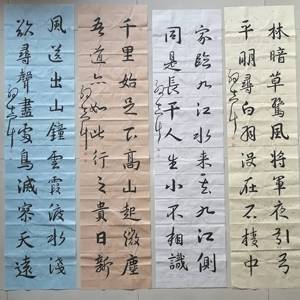 林暗草驚風將軍夜引弓
平明尋白羽沒在石棱中
家臨九江水來去九江側
同是長干人生小不相識
千里始足下高山起微塵
吾道亦如此行之貴日新
風送出山鐘雲霞渡水淺
欲尋聲盡處鳥滅寥天遠